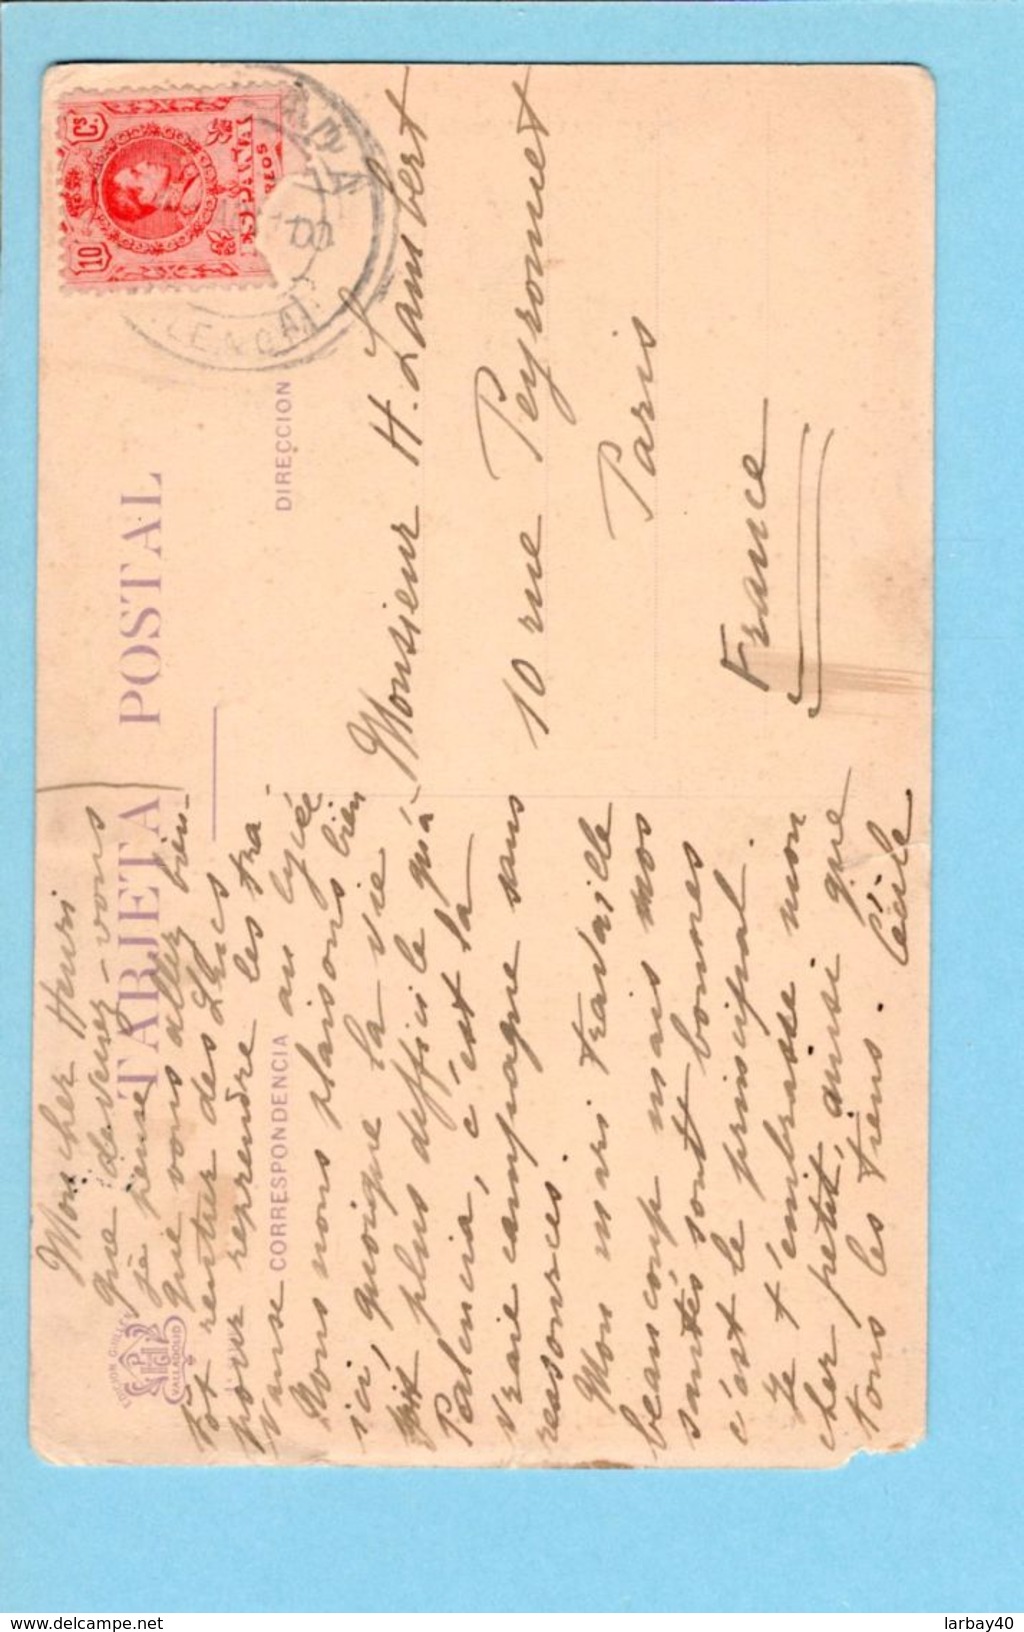 TARJETA POSTAL
CORRESPONDENCIA
DIRECCION
VALLADOLID
10 Cs
Mon cher Henri
que devenez-vous
je pense
que vous allez bien-
tôt rentrer des
pour reprendre les tra-
Nous nous plaisons bien
ici, quoique la vie
soit plus difficile qu'à
Palencia, c'est la
vraie campagne sans
ressources.
Mon mari travaille
beaucoup mais nos
santés sont bonnes
c'est le principal.
Je t'embrasse mon
cher petit, ainsi que
tous les tiens. Cécile
Monsieur H. Lambert
10 rue Peyronnet
Paris
France
delcampe.net
larbay40